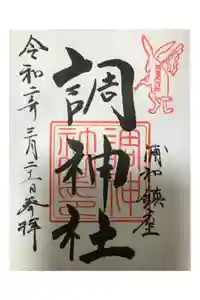 浦和鎮座
調神社
令和二年三月二十一日参拝